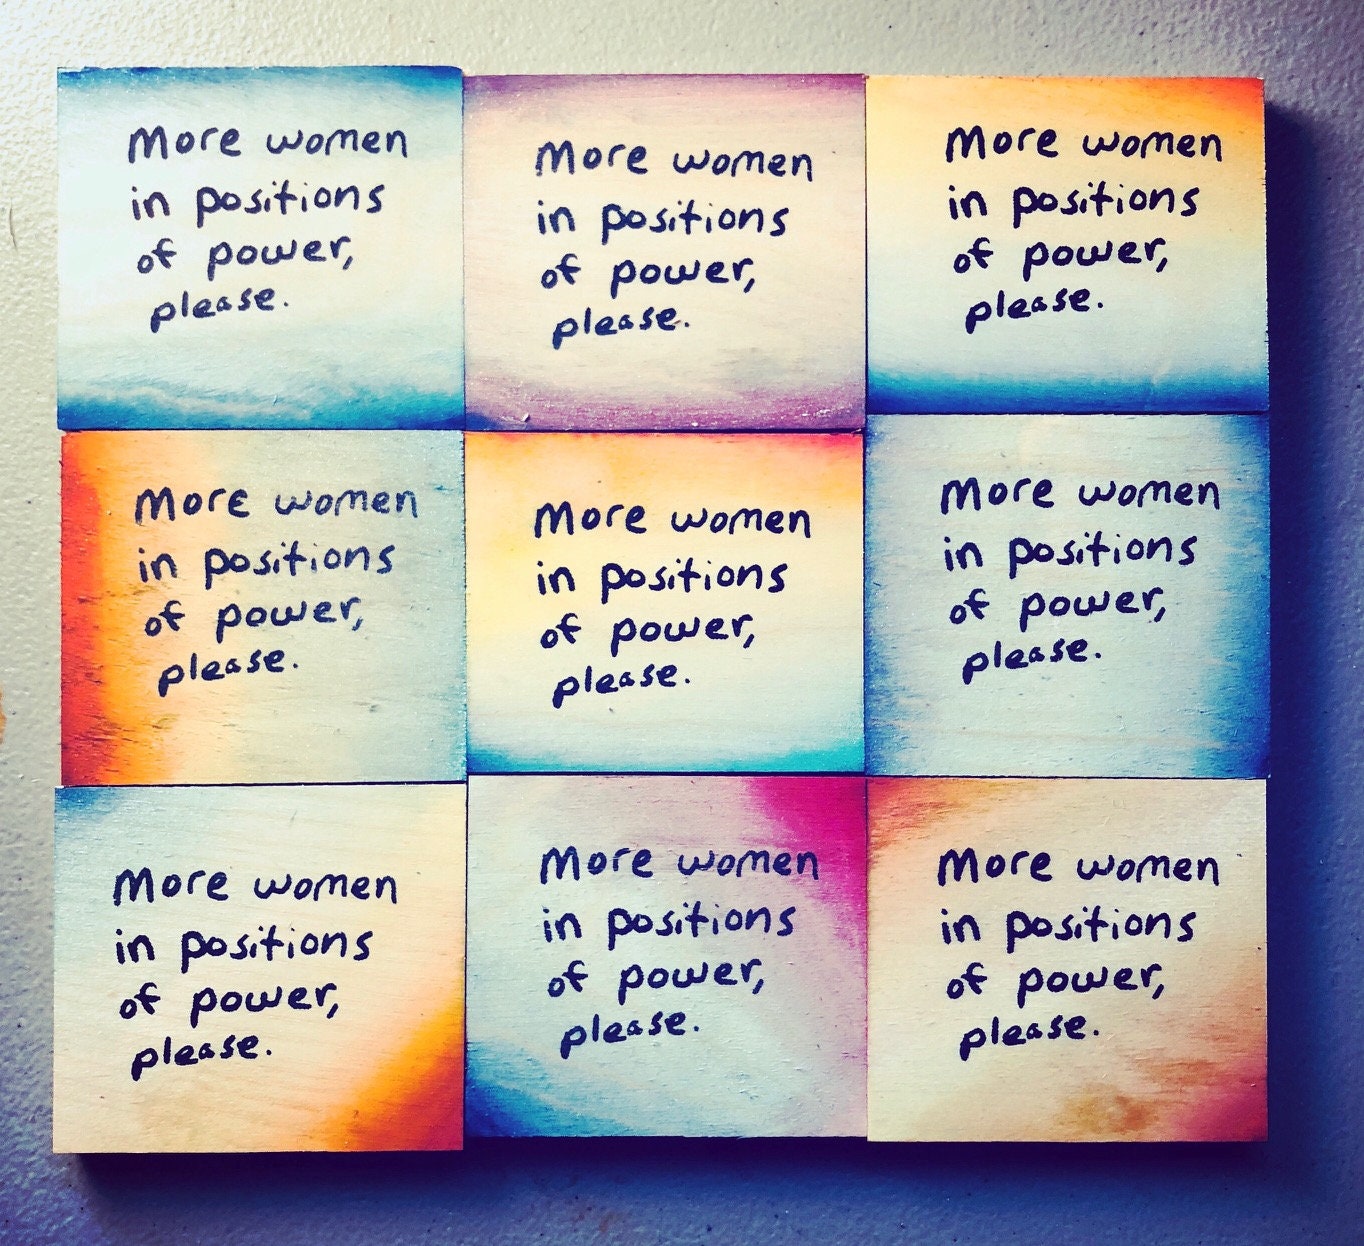 More women
in positions
of power,
please.
More women
in positions
of power,
please.
More women
in positions
of power,
please.
More women
in positions
of power,
please.
More women
in positions
of power,
please.
More women
in positions
of power,
please.
More women
in positions
of power,
please.
More women
in positions
of power,
please.
More women
in positions
of power,
please.